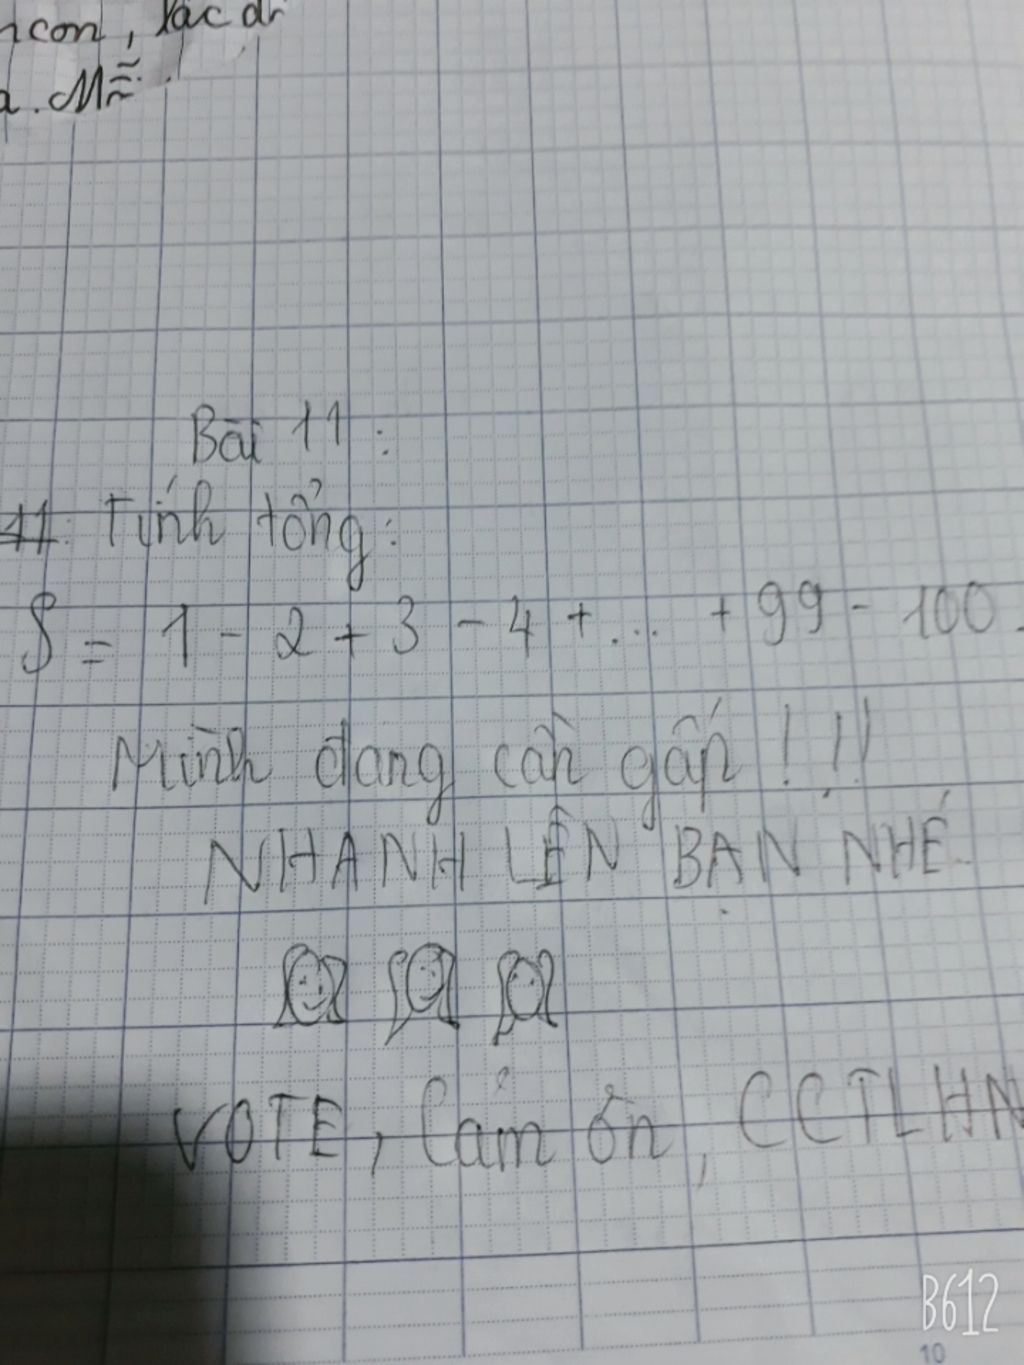 con, xác đị
a. Mẽ
Bài 11:
11. Tính tổng:
S = 1 - 2 + 3 - 4 + ... + 99 - 100.
Mình đang cần gấp!!!
NHANH LÊN BẠN NHÉ
VOTE, Cảm ơn, CCTLHN
B612
10